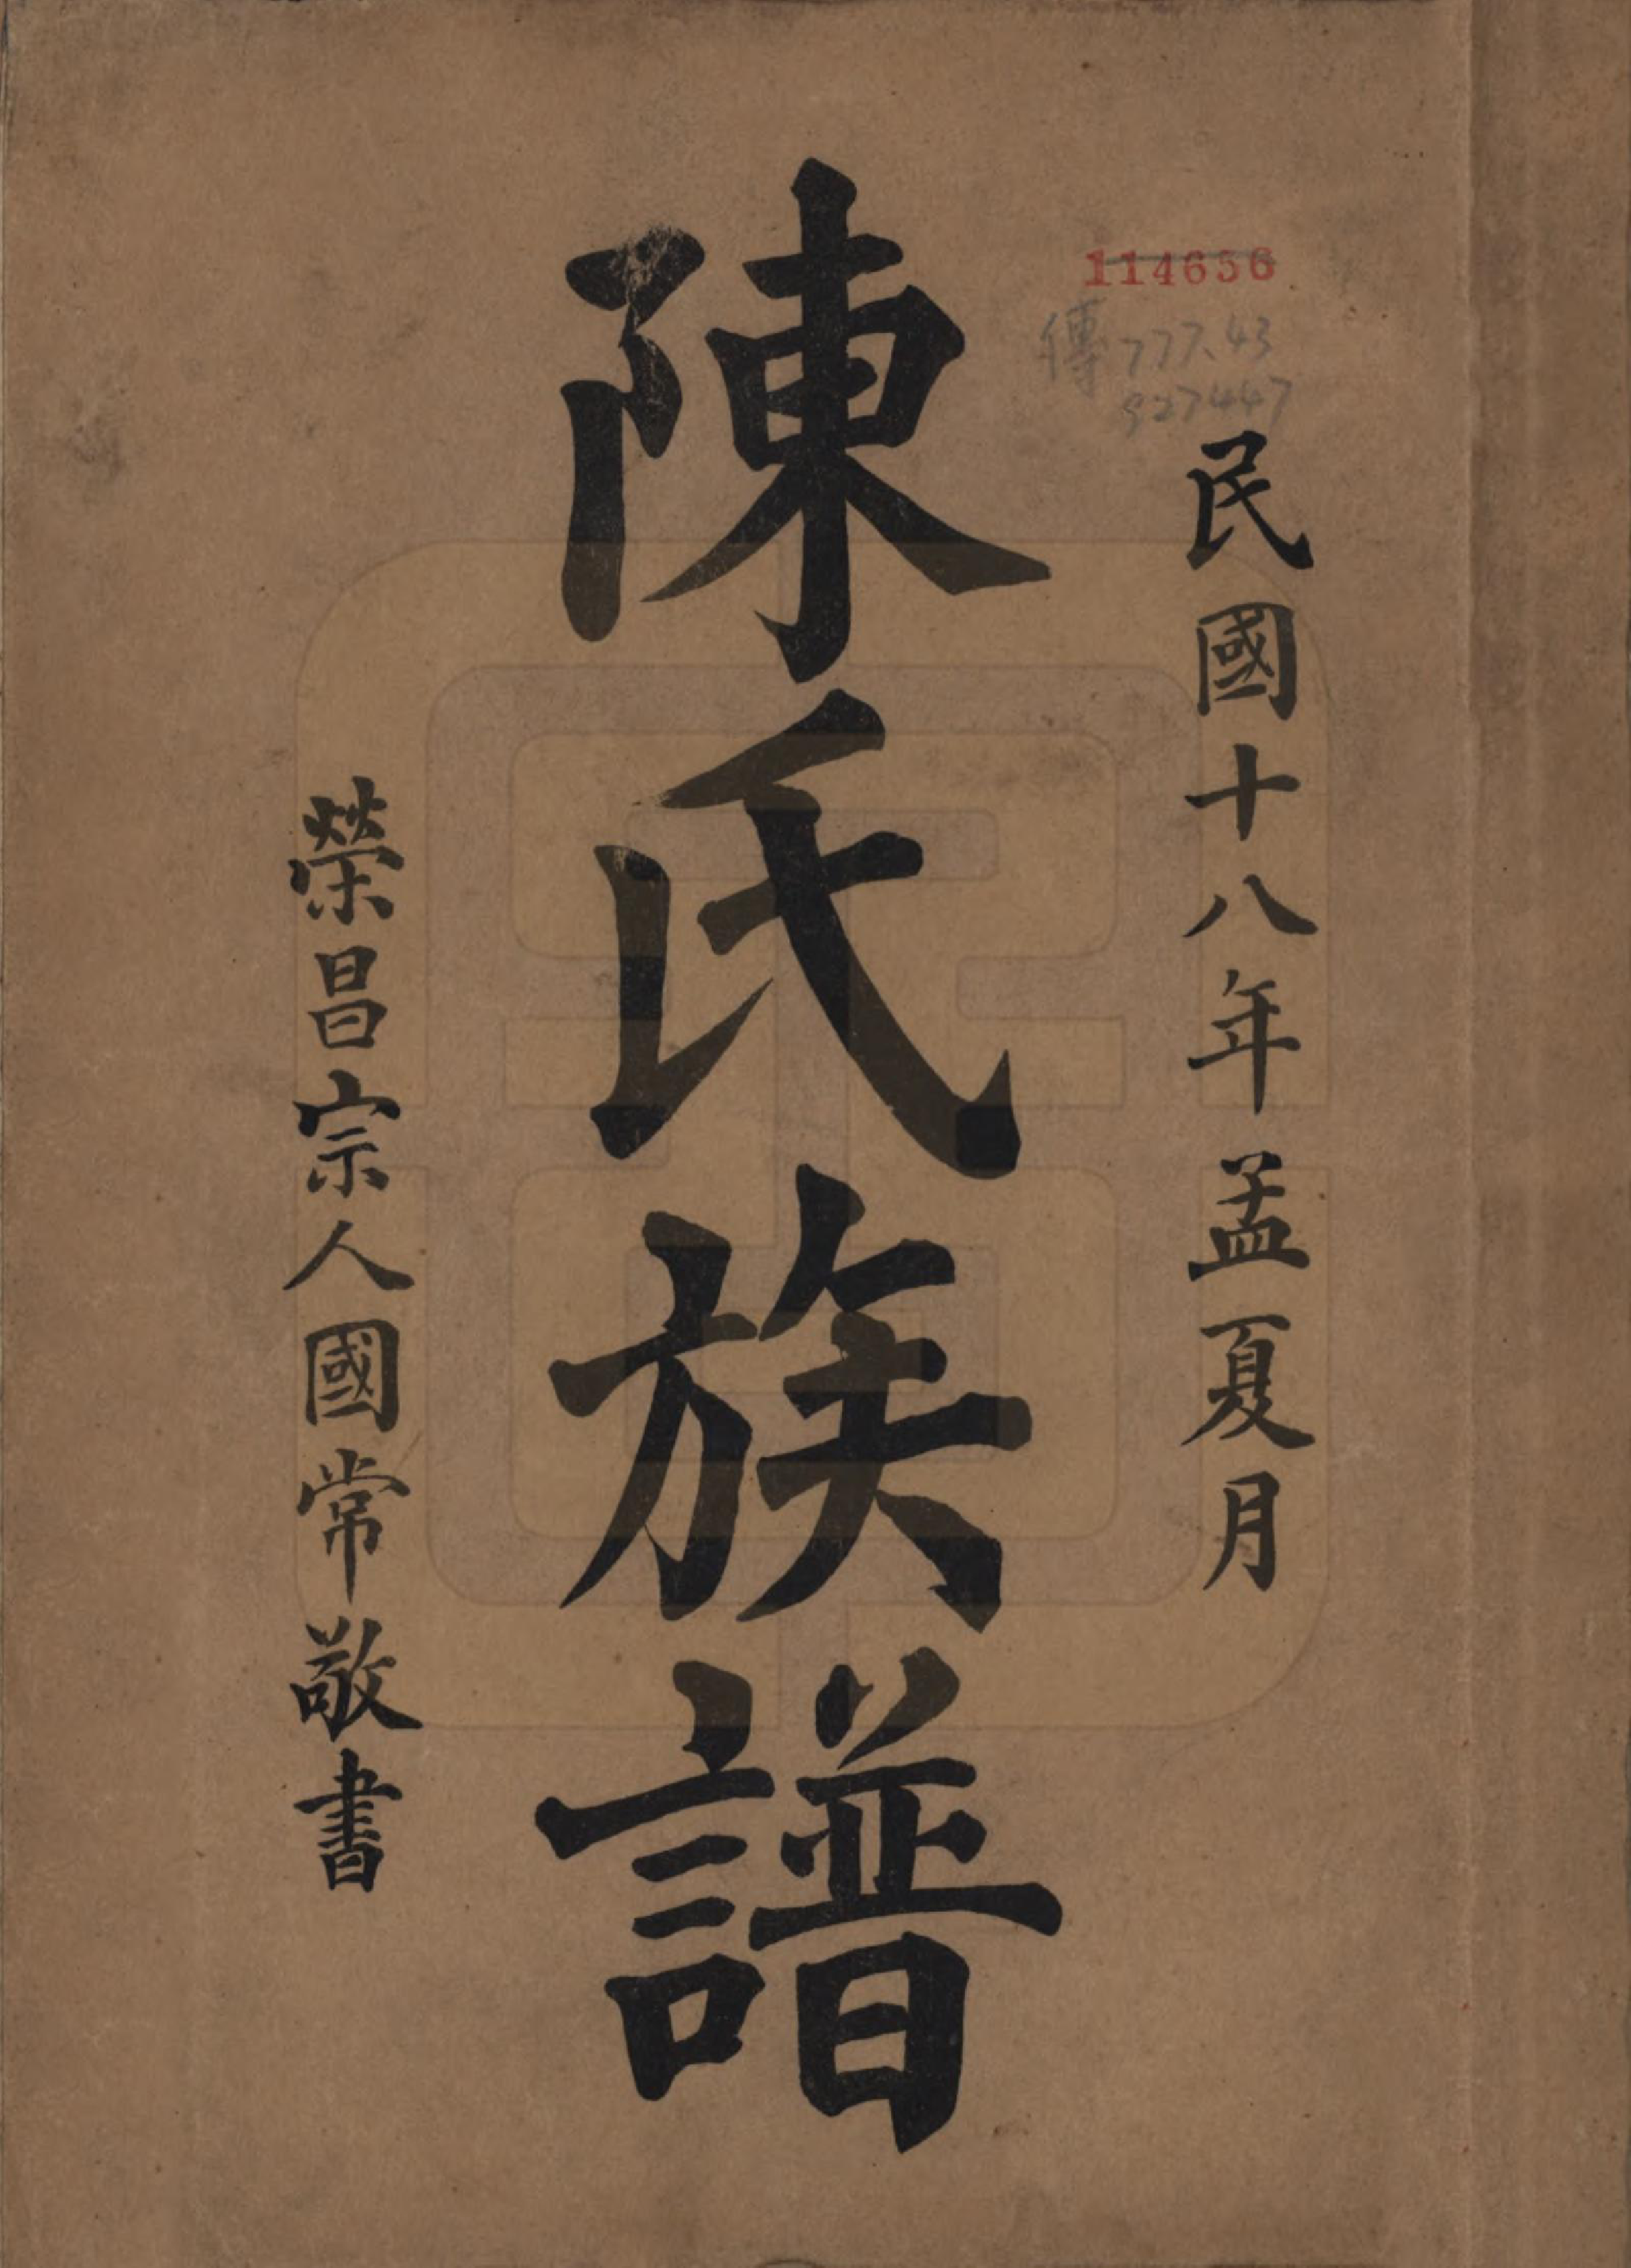 114656
傳777.43
927447
民國十八年孟夏月
陳氏族譜
榮昌宗人國常敬書